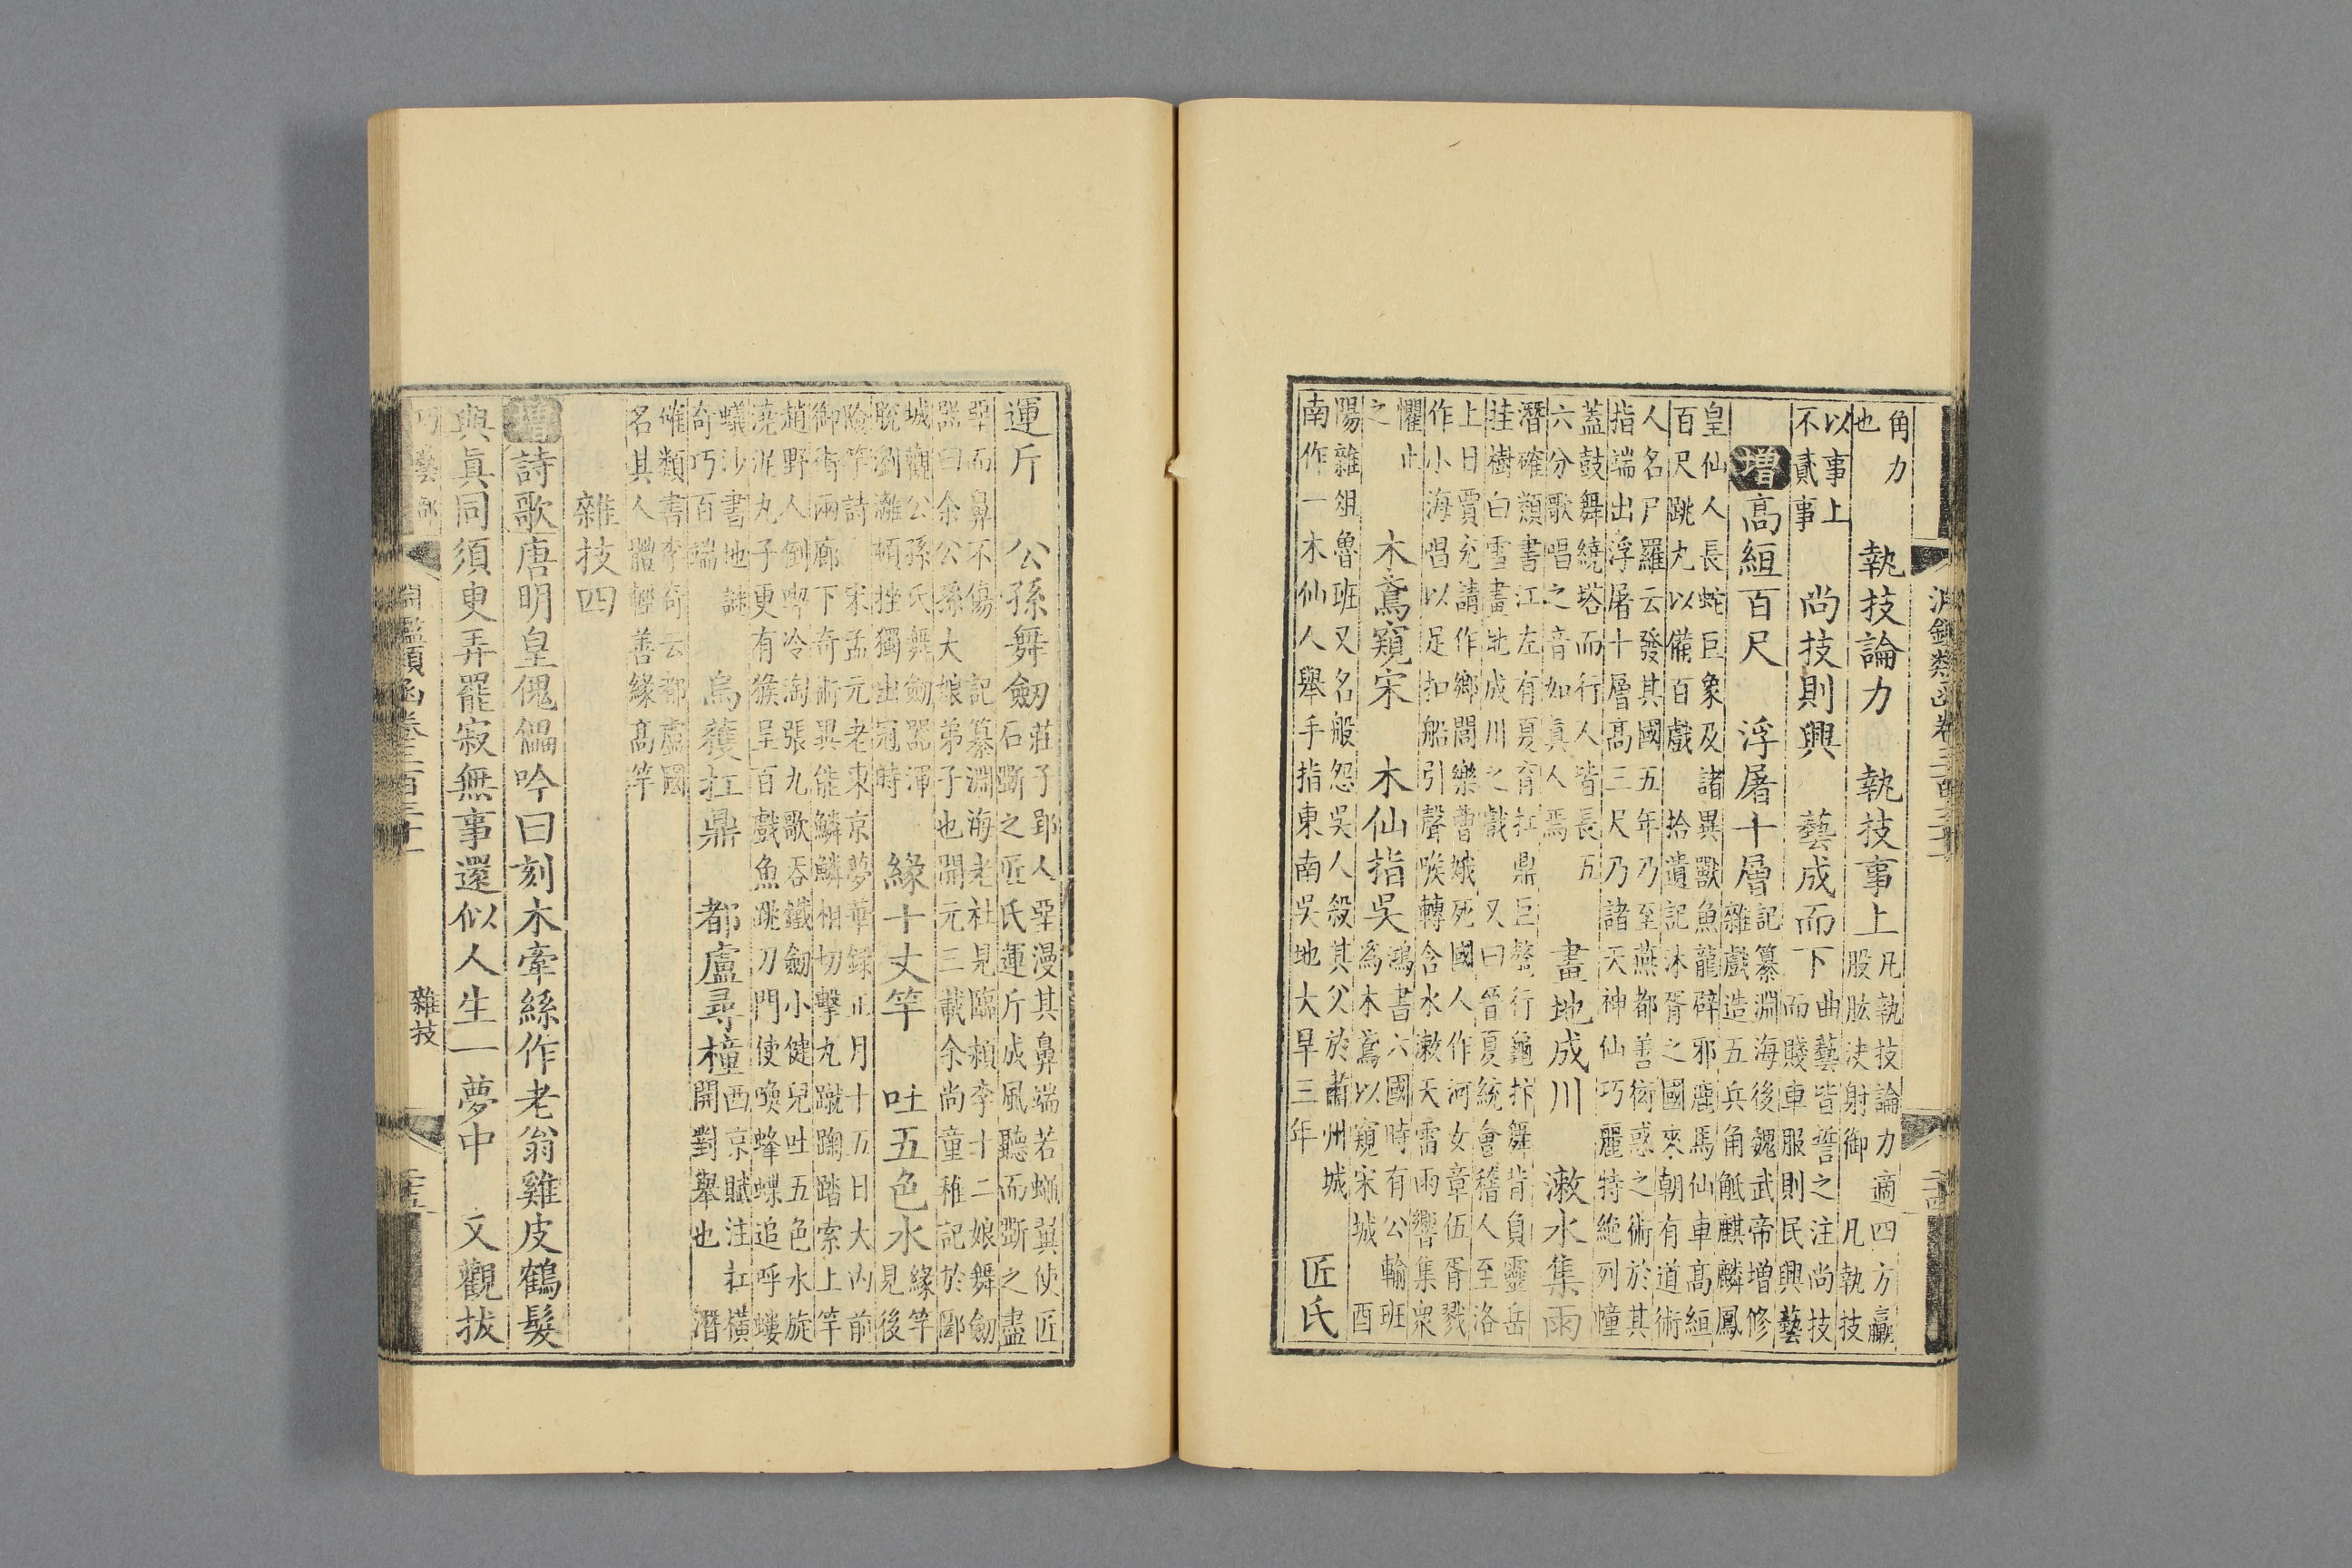 淵鑑類函卷三百三十一
二十四
角力
也
執技論力　執技事上
凡執技論力適四方臝
股肱決射御　凡執技
以事上
不貳事
尚技則興　藝成而下
曲藝皆誓之注尚技
而賤車服則民興藝
增高絙百尺　浮屠十層
記纂淵海後魏武帝增修
雜戲造五兵角觝麒麟鳳
皇仙人長蛇巨象及諸異獸魚龍辟邪鹿馬仙車高絙
百尺跳丸以備百戲　拾遺記沐胥之國來朝有道術
人名尸羅云發其國五年乃至燕都善衒惑之術於其
指端出浮屠十層高三尺乃諸天神仙巧麗特絶列幢
蓋鼓舞繞塔而行人皆長五
六分歌唱之音如真人焉
畫地成川　漱水集雨
潛確類書江左有夏育扛鼎巨鼇行龜抃舞背負靈岳
挂樹白雪畫地成川之戲　又曰晉夏統會稽人至洛
上日賈充請作鄉閭樂曹娥死國人作河女章伍胥戮
作小海唱以足扣船引聲喉轉含水漱天雷雨響集衆
懼止
之
木鳶窺宋　木仙指吳
鴻書六國時有公輸班
為木鳶以窺宋城　酉
陽雜俎魯班又名般怨吳人殺其父於肅州城
南作一木仙人舉手指東南吳地大旱三年
匠氏
運斤　公孫舞劒
莊子郢人堊漫其鼻端若蠅翼使匠
石斲之匠氏運斤成風聽而斲之盡
堊而鼻不傷　記纂淵海老杜見臨潁李十二娘舞劒
器曰余公孫大娘弟子也開元三載余尚童稚記於郾
城觀公孫氏舞劒器渾
脫瀏灕頓挫獨出冠時
緣十丈竿　吐五色水
緣竿
見後
險竿詩　宋孟元老東京夢華録正月十五日大內前
御街兩廊下奇術異能鱗鱗相切擊丸蹴踘踏索上竿
趙野人倒喫冷淘張九歌吞鐵劒小健兒吐五色水旋
澆泥丸子更有猴呈百戲魚跳刀門使喚蜂蝶追呼螻
蟻沙書地謎
奇巧百端
烏獲扛鼎　都盧尋橦
西京賦注扛橫
開對舉也　潛
確類書李奇云都盧國
名其人體輕善緣高竿
雜技四
增詩歌唐明皇傀儡吟曰刻木牽絲作老翁雞皮鶴髮
與真同須臾弄罷寂無事還似人生一夢中　文觀拔
巧藝部
淵鑑類函卷三百三十一
雜技
二十五